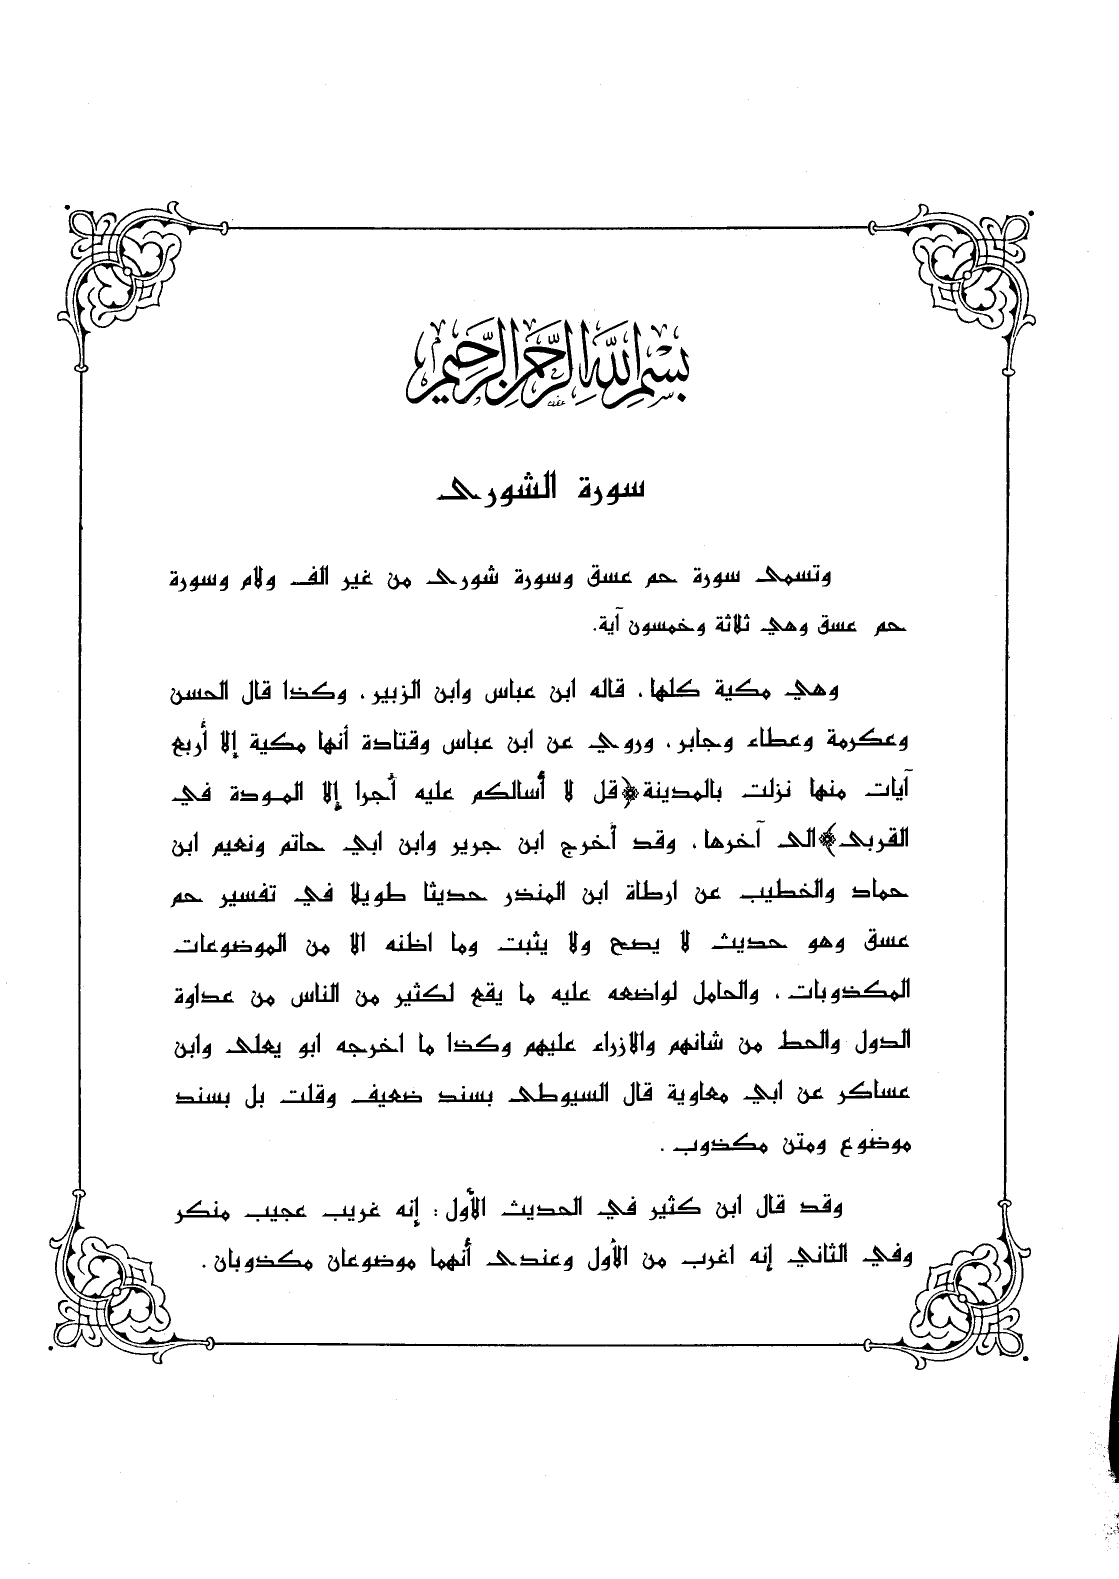 بسم الله الرحمن الرحيم
سورة الشورى
وتسمى سورة حم عسق وسورة شورى من غير الف ولام وسورة
حم عسق وهي ثلاثة وخمسون آية.
وهي مكية كلها، قاله ابن عباس وابن الزبير، وكذا قال الحسن
وعكرمة وعطاء وجابر، وروي عن ابن عباس وقتادة أنها مكية إلا أربع
آيات منها نزلت بالمدينة ﴿قل لا أسالكم عليه أجرا إلا المودة في
القربى﴾ الى آخرها، وقد أخرج ابن جرير وابن ابي حاتم ونعيم ابن
حماد والخطيب عن ارطاة ابن المنذر حديثا طويلا في تفسير حم
عسق وهو حديث لا يصح ولا يثبت وما اظنه الا من الموضوعات
المكذوبات، والحامل لواضعه عليه ما يقع لكثير من الناس من عداوة
الدول والحط من شانهم والازراء عليهم وكذا ما اخرجه ابو يعلى وابن
عساكر عن ابي معاوية قال السيوطى بسند ضعيف وقلت بل بسند
موضوع ومتن مكذوب.
وقد قال ابن كثير في الحديث الأول: إنه غريب عجيب منكر
وفي الثاني إنه اغرب من الأول وعندى أنهما موضوعان مكذوبان.